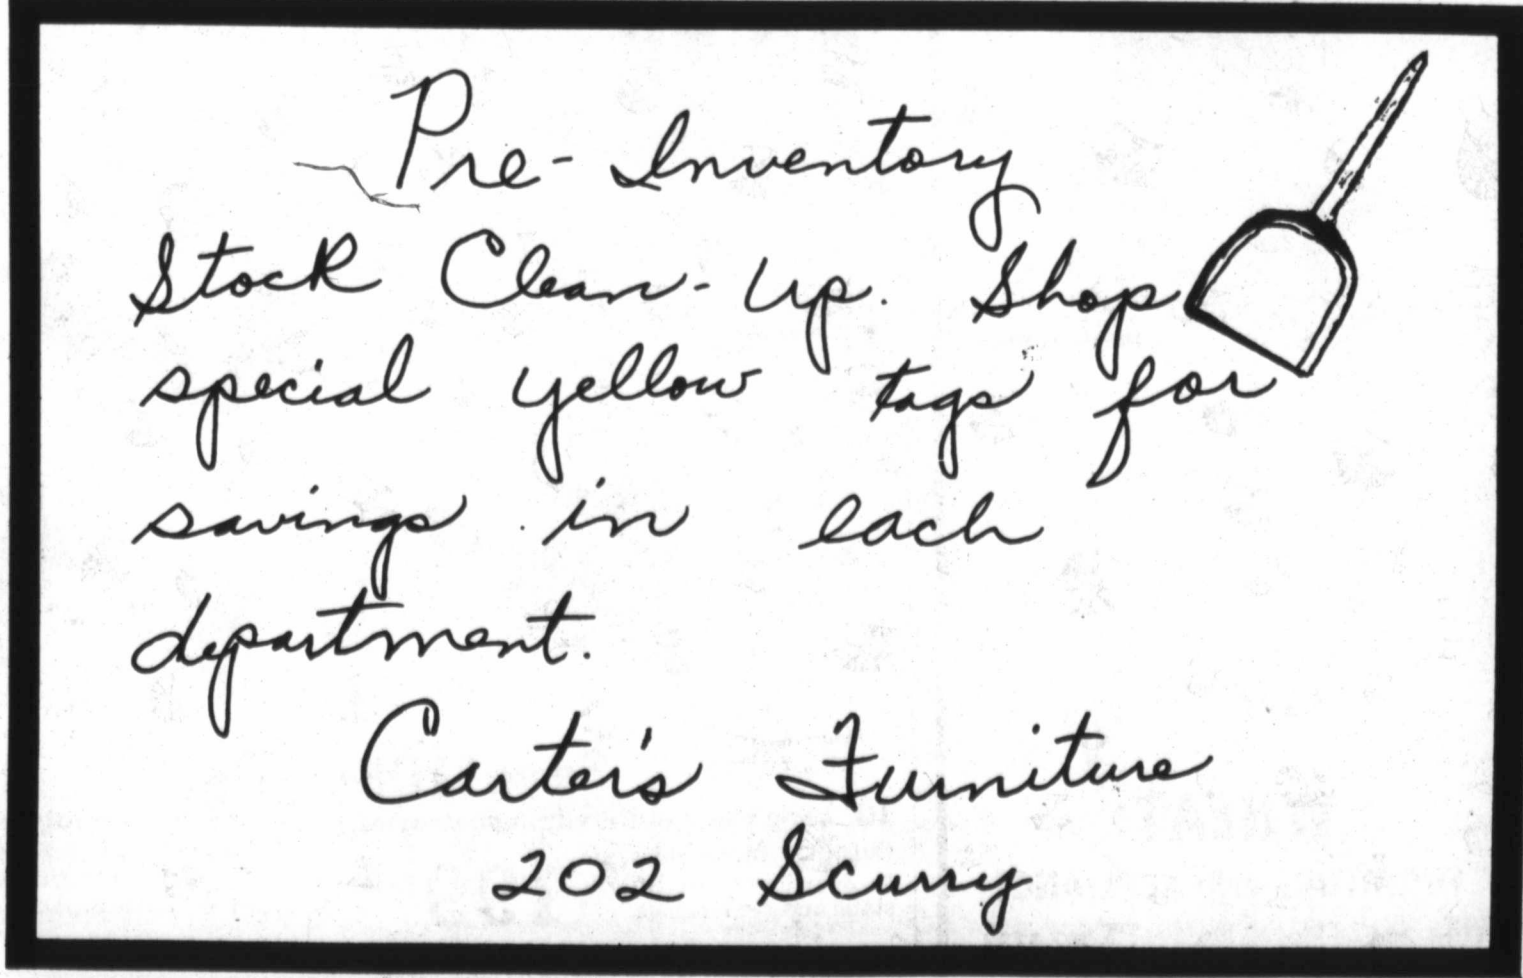 Pre-Inventory
Stock Clean-Up. Shop
special yellow tags for
savings in each
department.
Carter's Furniture
202 Scurry